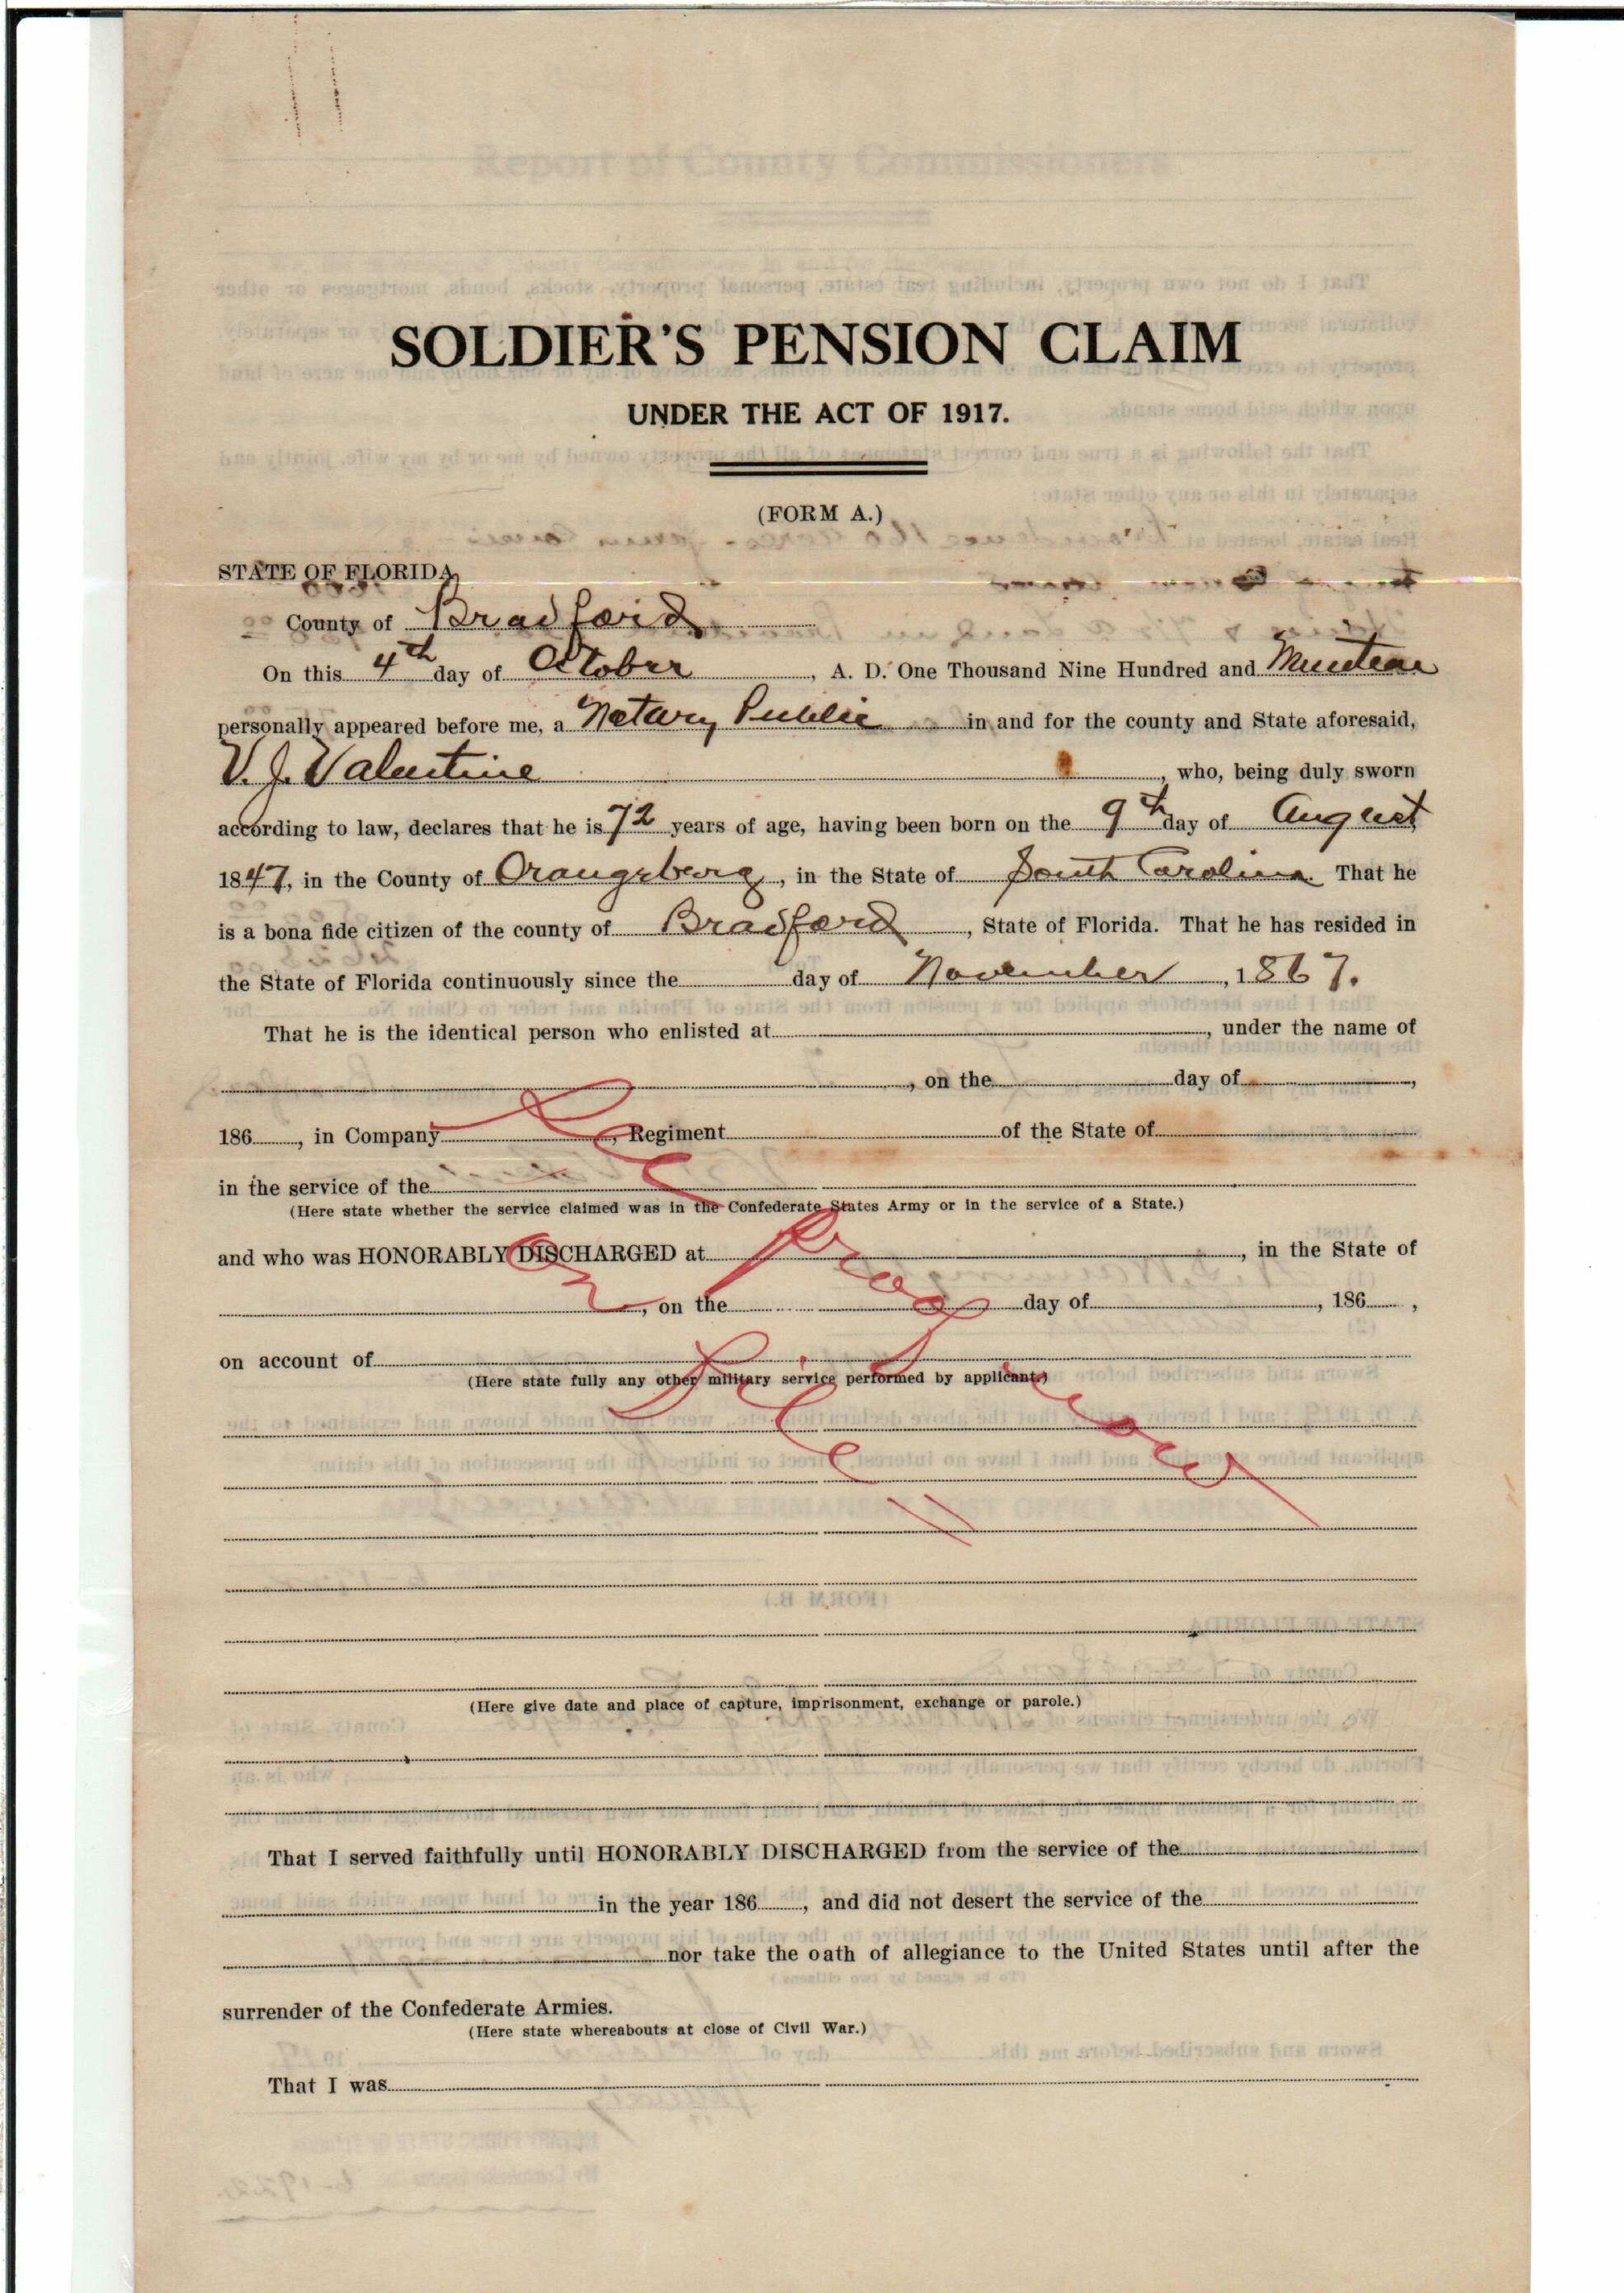 SOLDIER'S PENSION CLAIM
UNDER THE ACT OF 1917.
(FORM A.)
STATE OF FLORIDA,
County of Bradford
On this 4th day of October, A. D. One Thousand Nine Hundred and Nineteen
personally appeared before me, a Notary Public in and for the county and State aforesaid,
V. J. Valentine, who, being duly sworn
according to law, declares that he is 72 years of age, having been born on the 9th day of August
1847, in the County of Orangeburg, in the State of South Carolina. That he
is a bona fide citizen of the county of Bradford, State of Florida. That he has resided in
the State of Florida continuously since the day of November, 1867.
That he is the identical person who enlisted at, under the name of
, on the day of,
186, in Company, Regiment of the State of
in the service of the
(Here state whether the service claimed was in the Confederate States Army or in the service of a State.)
and who was HONORABLY DISCHARGED at, in the State of
, on the day of, 186,
on account of
(Here state fully any other military service performed by applicant.)
(Here give date and place of capture, imprisonment, exchange or parole.)
That I served faithfully until HONORABLY DISCHARGED from the service of the
in the year 186, and did not desert the service of the
nor take the oath of allegiance to the United States until after the
surrender of the Confederate Armies.
(Here state whereabouts at close of Civil War.)
That I was